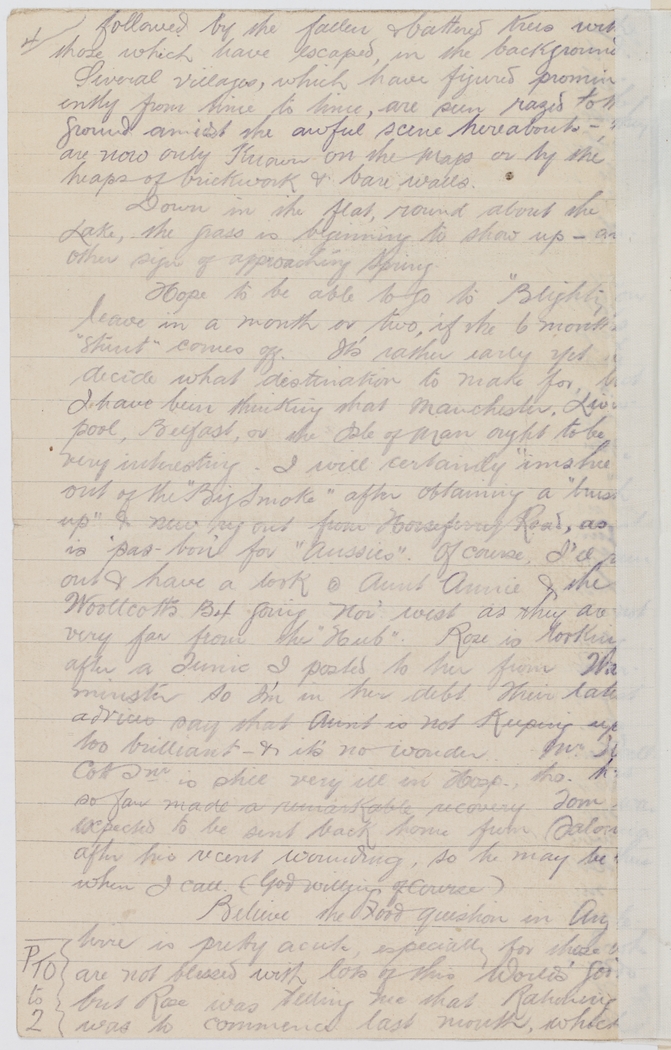 4/ followed by the fallen & battered trees with
those which have escaped, in the background
Several villages, which have figured promin
ently from time to time, are seen razed to
ground amidst the awful scene hereabouts -
are now only known on the maps or by the
heaps of brickwork & bare walls.
Down in the flat, round about the
Lake, the grass is beginning to show up - an
other sign of approaching Spring
Hope to be able to go to "Blighty,
leave in a month or two, if the 6 months
"stunt" comes off. It's rather early yet
decide what destination to make for,
I have been thinking that Manchester, Liver
pool, Belfast, or the Isle of Man ought to be
very interesting - I will certainly "imshee
out of the "Big Smoke" after obtaining a "brush
up" & new rig out from Horseferry Road, as
is 'pas-bon' for "Aussies". Of course, I'll
out & have a look @ Aunt Annie & the
Woollcotts Bef going Nor' west as they are
very far from the "Hub". Rose is looking
after a Tunic I posted to her from
minster so I'm in her debt Their late
advices say that Aunt is not Keeping up
too brilliant - & it's no wonder. Mr.
Cott Snr is still very ill in Hosp., tho.
so far made a remarkable recovery Tom
expected to be sent back home from Salon
after his recent wounding, so he may be
when I call. (God willing of Course)
Believe the Food question in
here is pretty acute, especially for those
are not blessed with lots of this World's
but Rose was telling me that Rationing
was to commence last month, which
PTO
to
2